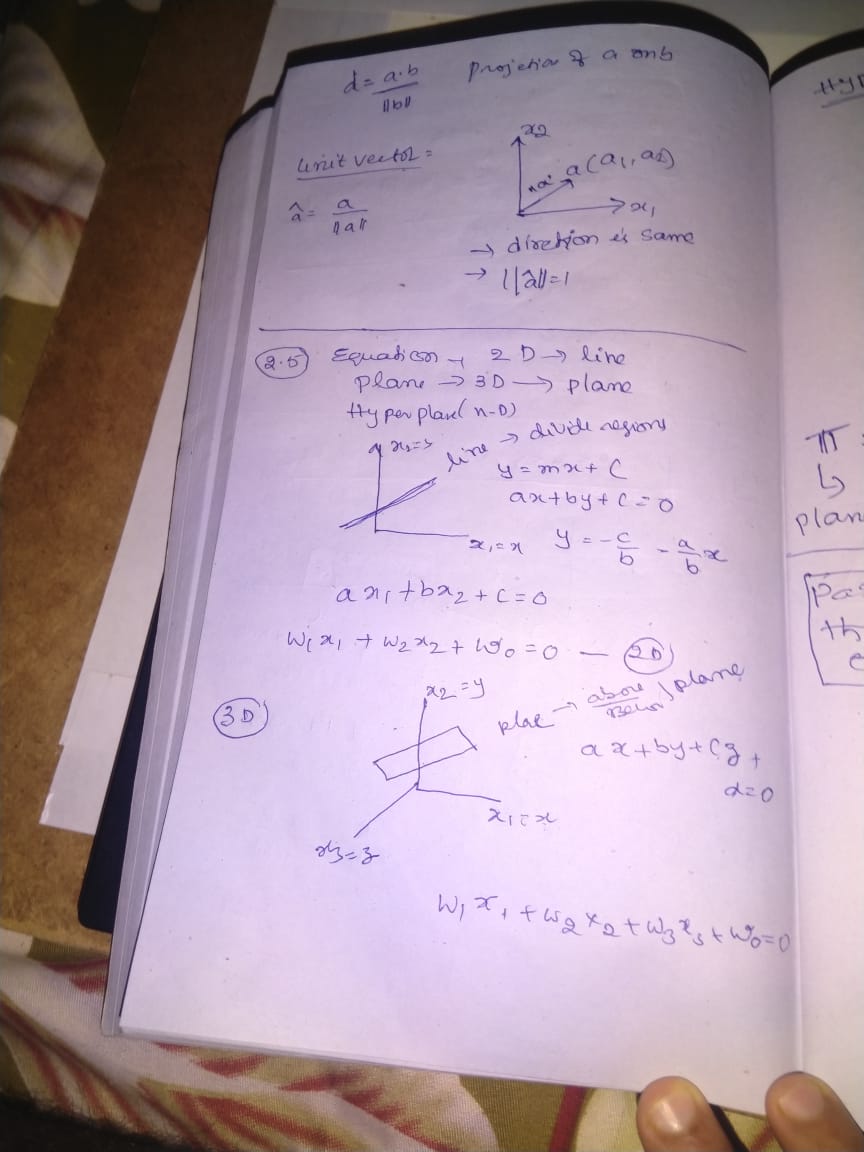 d = a.b / ||b|| projection of a on b
x2
Unit vector =
a(a1, a2)
"â"
â = a / ||a||
x1
→ direction is same
→ ||â|| = 1
2.5 Equation → 2D → line
plane → 3D → plane
Hyper plane (n-D)
x2=y line → divide regions
y = mx + C
ax+by+C=0
x1=x y = -c/b - a/b x
ax1+bx2+C=0
W1x1 + W2x2 + W0 = 0 — 2D
3D
x2=y
above
plane
ax+by+Cz+
d=0
x1=x
x3=z
W1x1+W2x2+W3x3+W0=0
HyP
π
↳
plan
Pa
th